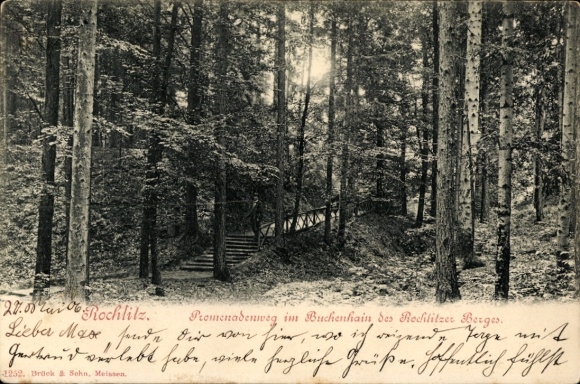 27. Mai 06
Rochlitz.
Promenadenweg im Buchenhain des Rochlitzer Berges.
Lieber Max, sende Dir von hier, wo ich reizende Tage mit
Gertrud verlebt habe, viele herzliche Grüße. Hoffentlich fühlst
1252. Brück & Sohn, Meissen.